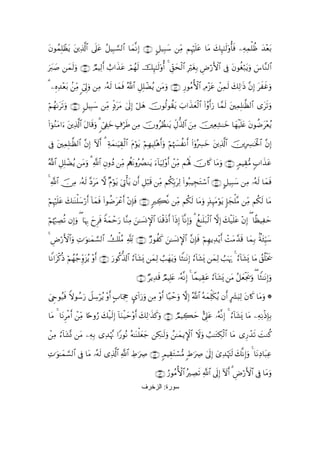 بَعْدَ ظُلْمِهِۦ فَأُو۟لَٰٓئِكَ مَا عَلَيْهِم مِّن سَبِيلٍ ۝ إِنَّمَا ٱلسَّبِيلُ عَلَى ٱلَّذِينَ يَظْلِمُونَ
ٱلنَّاسَ وَيَبْغُونَ فِى ٱلْأَرْضِ بِغَيْرِ ٱلْحَقِّ ۚ أُو۟لَٰٓئِكَ لَهُمْ عَذَابٌ أَلِيمٌ ۝ وَلَمَن صَبَرَ
وَغَفَرَ إِنَّ ذَٰلِكَ لَمِنْ عَزْمِ ٱلْأُمُورِ ۝ وَمَن يُضْلِلِ ٱللَّهُ فَمَا لَهُۥ مِن وَلِىٍّ مِّنۢ بَعْدِهِۦ ۗ
وَتَرَى ٱلظَّٰلِمِينَ لَمَّا رَأَوُا۟ ٱلْعَذَابَ يَقُولُونَ هَلْ إِلَىٰ مَرَدٍّ مِّن سَبِيلٍ ۝ وَتَرَىٰهُمْ
يُعْرَضُونَ عَلَيْهَا خَٰشِعِينَ مِنَ ٱلذُّلِّ يَنظُرُونَ مِن طَرْفٍ خَفِىٍّ ۗ وَقَالَ ٱلَّذِينَ ءَامَنُوٓا۟
إِنَّ ٱلْخَٰسِرِينَ ٱلَّذِينَ خَسِرُوٓا۟ أَنفُسَهُمْ وَأَهْلِيهِمْ يَوْمَ ٱلْقِيَٰمَةِ ۗ أَلَآ إِنَّ ٱلظَّٰلِمِينَ فِى
عَذَابٍ مُّقِيمٍ ۝ وَمَا كَانَ لَهُم مِّنْ أَوْلِيَآءَ يَنصُرُونَهُم مِّن دُونِ ٱللَّهِ ۗ وَمَن يُضْلِلِ ٱللَّهُ
فَمَا لَهُۥ مِن سَبِيلٍ ۝ ٱسْتَجِيبُوا۟ لِرَبِّكُم مِّن قَبْلِ أَن يَأْتِىَ يَوْمٌ لَّا مَرَدَّ لَهُۥ مِنَ ٱللَّهِ ۚ
مَا لَكُم مِّن مَّلْجَإٍ يَوْمَئِذٍ وَمَا لَكُم مِّن نَّكِيرٍ ۝ فَإِنْ أَعْرَضُوا۟ فَمَآ أَرْسَلْنَٰكَ عَلَيْهِمْ
حَفِيظًا ۖ إِنْ عَلَيْكَ إِلَّا ٱلْبَلَٰغُ ۗ وَإِنَّآ إِذَآ أَذَقْنَا ٱلْإِنسَٰنَ مِنَّا رَحْمَةً فَرِحَ بِهَا ۖ وَإِن تُصِبْهُمْ
سَيِّئَةٌۢ بِمَا قَدَّمَتْ أَيْدِيهِمْ فَإِنَّ ٱلْإِنسَٰنَ كَفُورٌ ۝ لِّلَّهِ مُلْكُ ٱلسَّمَٰوَٰتِ وَٱلْأَرْضِ ۚ
يَخْلُقُ مَا يَشَآءُ ۚ يَهَبُ لِمَن يَشَآءُ إِنَٰثًا وَيَهَبُ لِمَن يَشَآءُ ٱلذُّكُورَ ۝ أَوْ يُزَوِّجُهُمْ ذُكْرَانًا
وَإِنَٰثًا ۖ وَيَجْعَلُ مَن يَشَآءُ عَقِيمًا ۚ إِنَّهُۥ عَلِيمٌ قَدِيرٌ ۝
۞ وَمَا كَانَ لِبَشَرٍ أَن يُكَلِّمَهُ ٱللَّهُ إِلَّا وَحْيًا أَوْ مِن وَرَآئِ حِجَابٍ أَوْ يُرْسِلَ رَسُولًا فَيُوحِىَ
بِإِذْنِهِۦ مَا يَشَآءُ ۚ إِنَّهُۥ عَلِىٌّ حَكِيمٌ ۝ وَكَذَٰلِكَ أَوْحَيْنَآ إِلَيْكَ رُوحًا مِّنْ أَمْرِنَا ۚ مَا
كُنتَ تَدْرِى مَا ٱلْكِتَٰبُ وَلَا ٱلْإِيمَٰنُ وَلَٰكِن جَعَلْنَٰهُ نُورًا نَّهْدِى بِهِۦ مَن نَّشَآءُ مِنْ
عِبَادِنَا ۚ وَإِنَّكَ لَتَهْدِىٓ إِلَىٰ صِرَٰطٍ مُّسْتَقِيمٍ ۝ صِرَٰطِ ٱللَّهِ ٱلَّذِى لَهُۥ مَا فِى ٱلسَّمَٰوَٰتِ
وَمَا فِى ٱلْأَرْضِ ۗ أَلَآ إِلَى ٱللَّهِ تَصِيرُ ٱلْأُمُورُ ۝
سورة: الزخرف